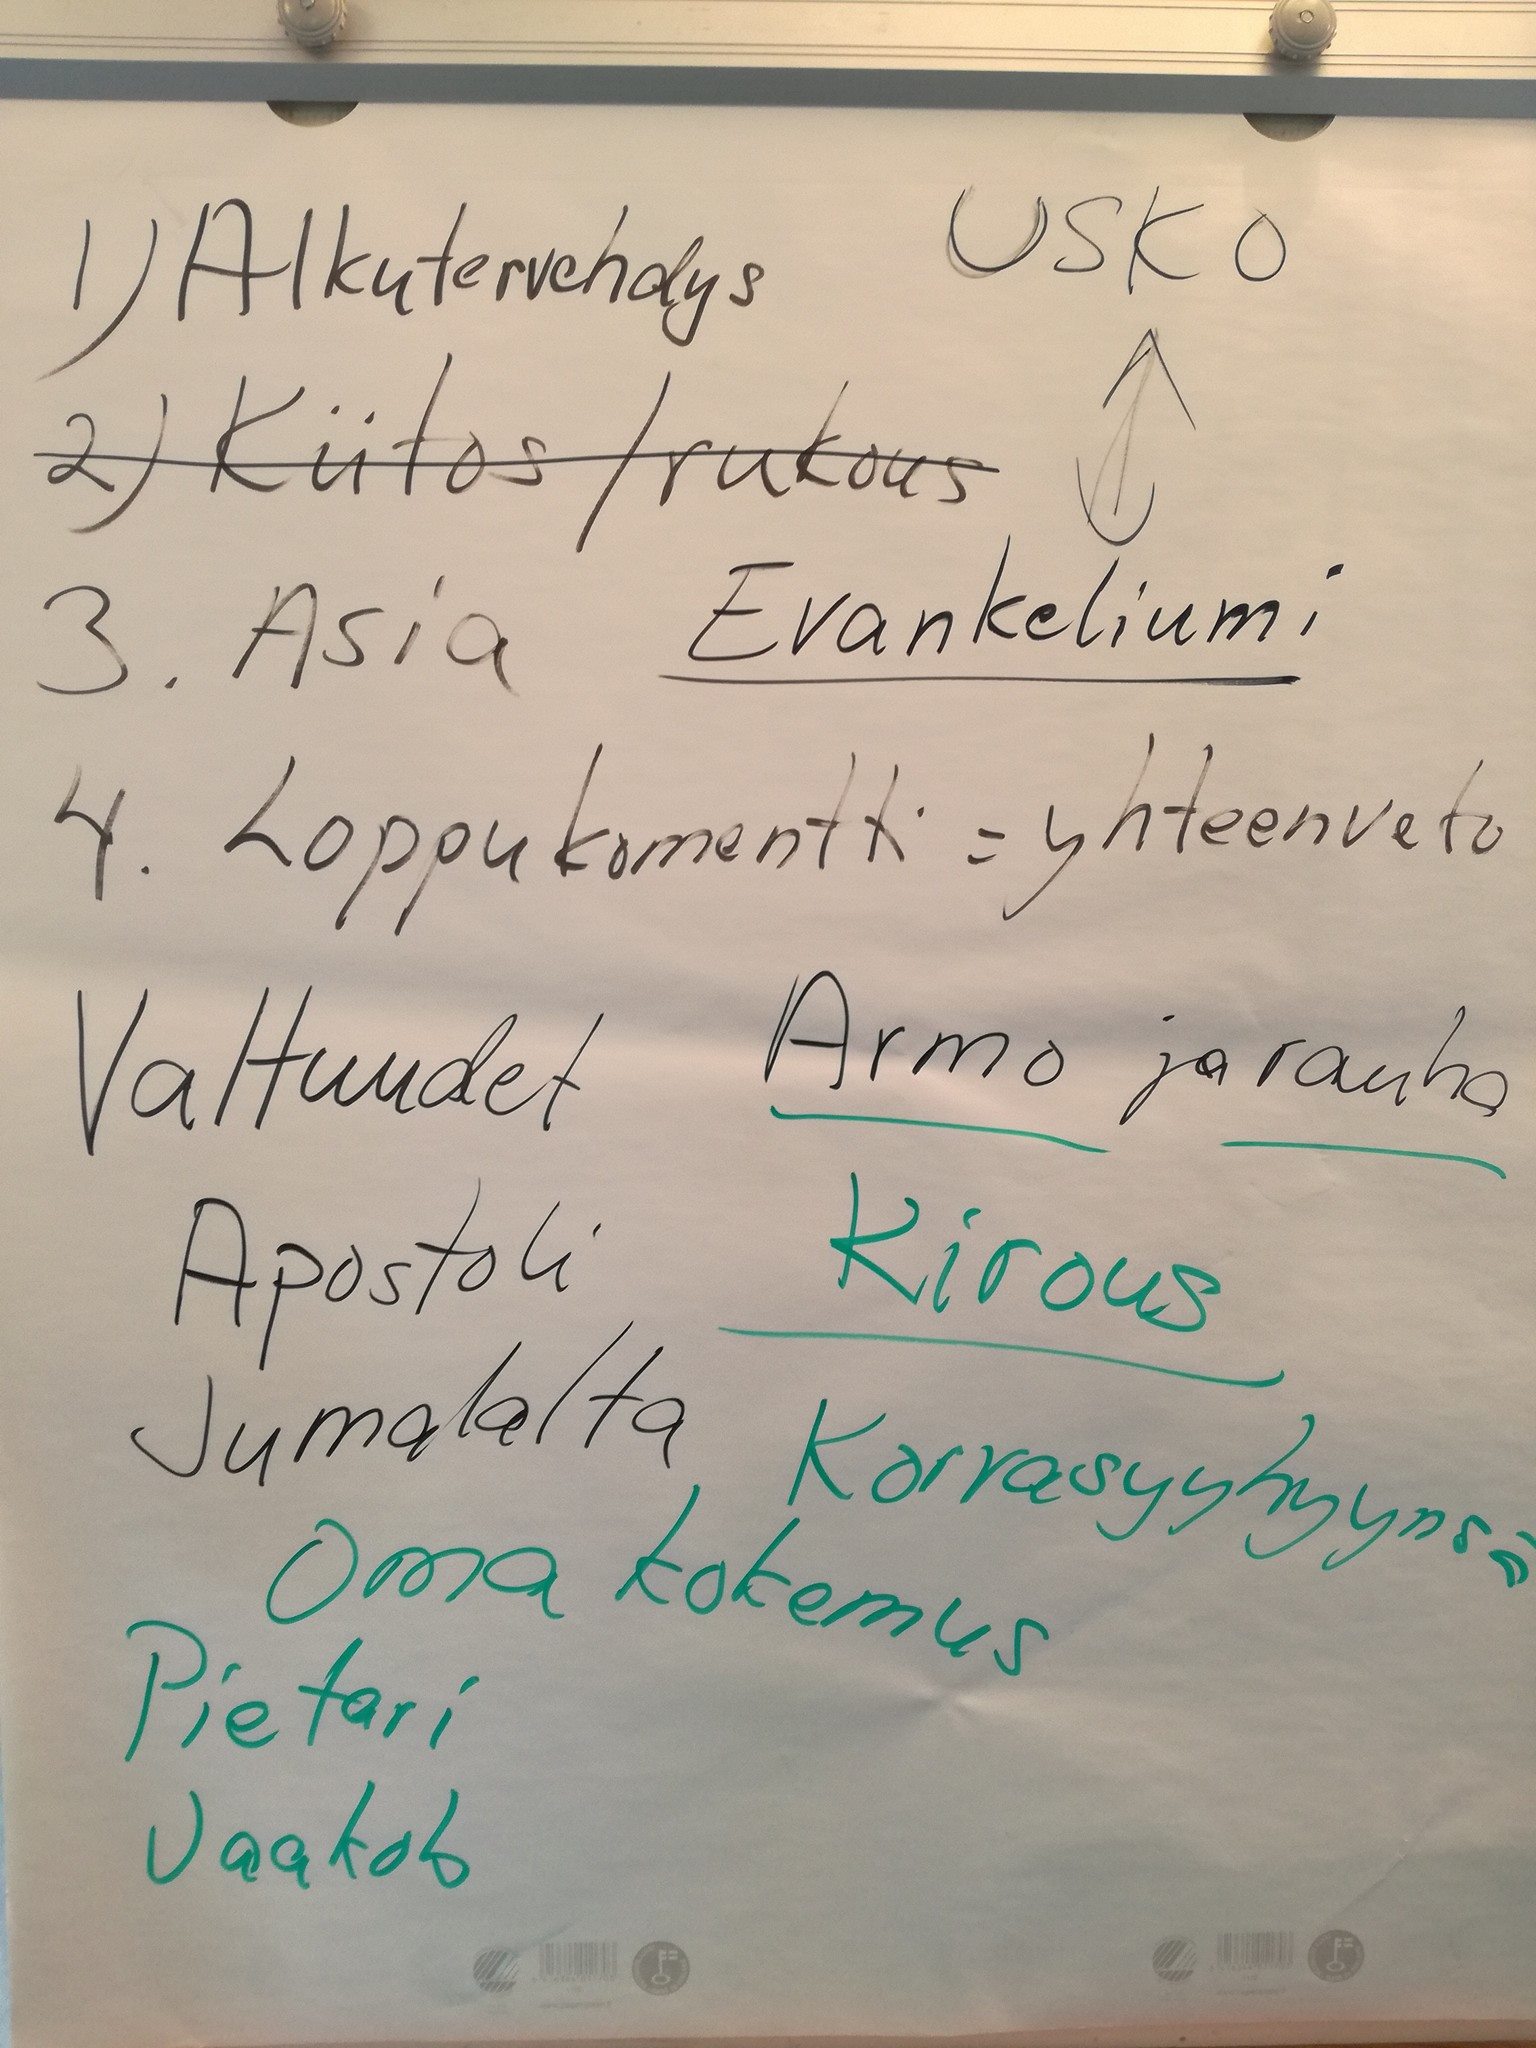 1) Alkutervehdys USKO
2) Kiitos / rukous
3. Asia Evankeliumi
4. Loppukomentti = yhteenveto
Valtuudet Armo ja rauha
Apostoli Kirous
Jumalalta Korvasyyhyynsä
Oma kokemus
Pietari
Jaakob